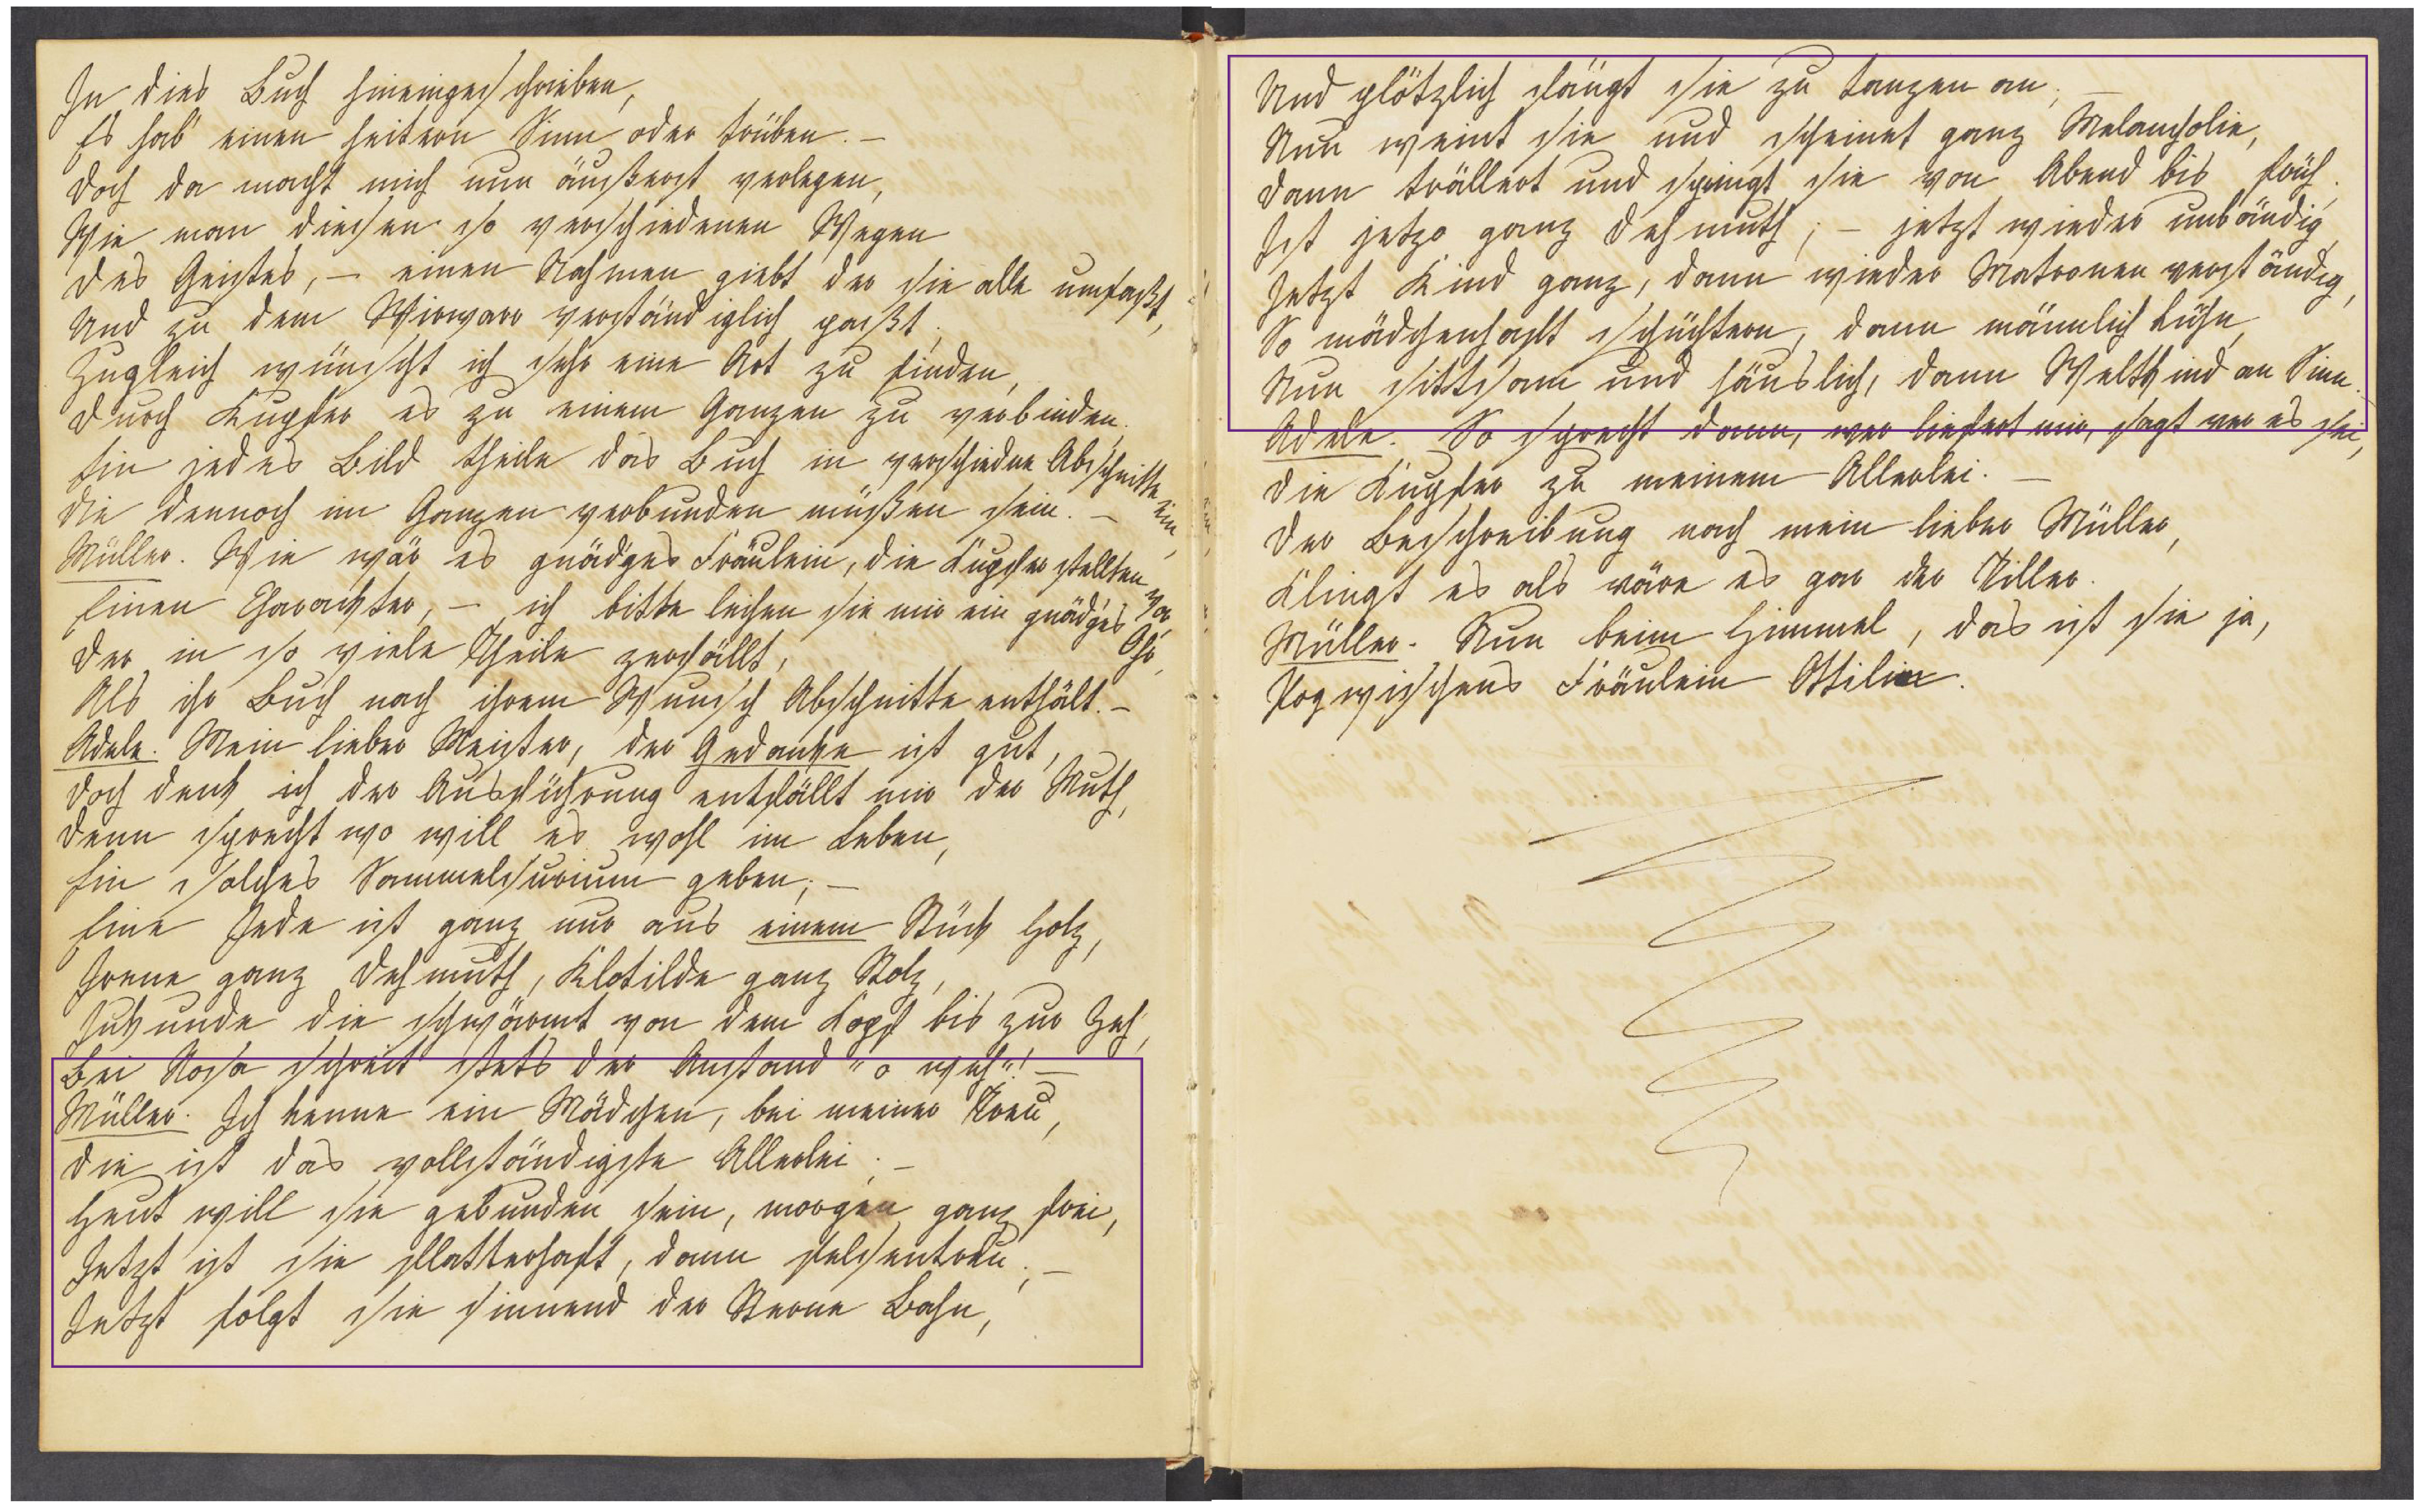 In dies Buch hineingeschrieben,
Es hab' einen heitern Sinn oder trüben. –
Doch da macht mich nun äußerst verlegen,
Wie man diesen so verschiedenen Wegen
Des Geistes, – einen Nahmen giebt der sie alle umfaßt,
Und zu dem Wirwarr verständiglich paßt.
Zugleich wünscht ich sehr eine Art zu finden,
Durch Kupfer es zu einem Ganzen zu verbinden.
Ein jedes Bild theile das Buch in verschiedne Abschnitte ein,
Die dennoch im Ganzen verbunden müßen sein. –
Müller. Wie wär es gnädges Fräulein, die Kupfer stellten vor
Einen Charackter, – ich bitte leihen sie mir ein gnädges Ohr,
Der in so viele Theile zerfällt,
Als ihr Buch nach ihrem Wunsch Abschnitte enthält. –
Adele. Mein lieber Meister, der Gedanke ist gut,
Doch denk ich der Ausführung entfällt mir der Muth,
Denn sprecht wo will es wohl im Leben,
Ein solches Sammelsurium geben; –
Eine Jede ist ganz nur aus einem Stück Holz,
Irene ganz Dehmuth, Klotilde ganz Stolz,
Jukunde die schwärmt von dem Kopf bis zur Zeh,
Bei Rosa schreit stets der Anstand "o weh"! –
Müller. Ich kenne ein Mädchen, bei meiner Treu,
Die ist das vollständigste Allerlei; –
Heut will sie gebunden sein, morgen ganz frei,
Jetzt ist sie flatterhaft, dann felsentreu; –
Jetzt folgt sie sinnend der Sterne Bahn,
Und plötzlich fängt sie zu tanzen an; –
Nun weint sie und scheinet ganz Melancholie,
Dann trällert und springt sie von Abend bis früh.
Ist jetzo ganz Dehmuth; – jetzt wieder unbändig,
Jetzt Kind ganz, dann wieder Matronen verständig,
So mädchenhaft schüchtern, dann männlich kühn,
Nun sittsam und häuslich, dann Weltkind an Sinn.
Adele. So sprecht dann, wer liefert mir, sagt wer es sei,
Die Kupfer zu meinem Allerlei. –
Der Beschreibung nach mein lieber Müller,
Klingt es als wäre es gar der Tiller.
Müller. Nun beim Himmel, das ist sie ja,
Pogwischens Fräulein Ottilie.